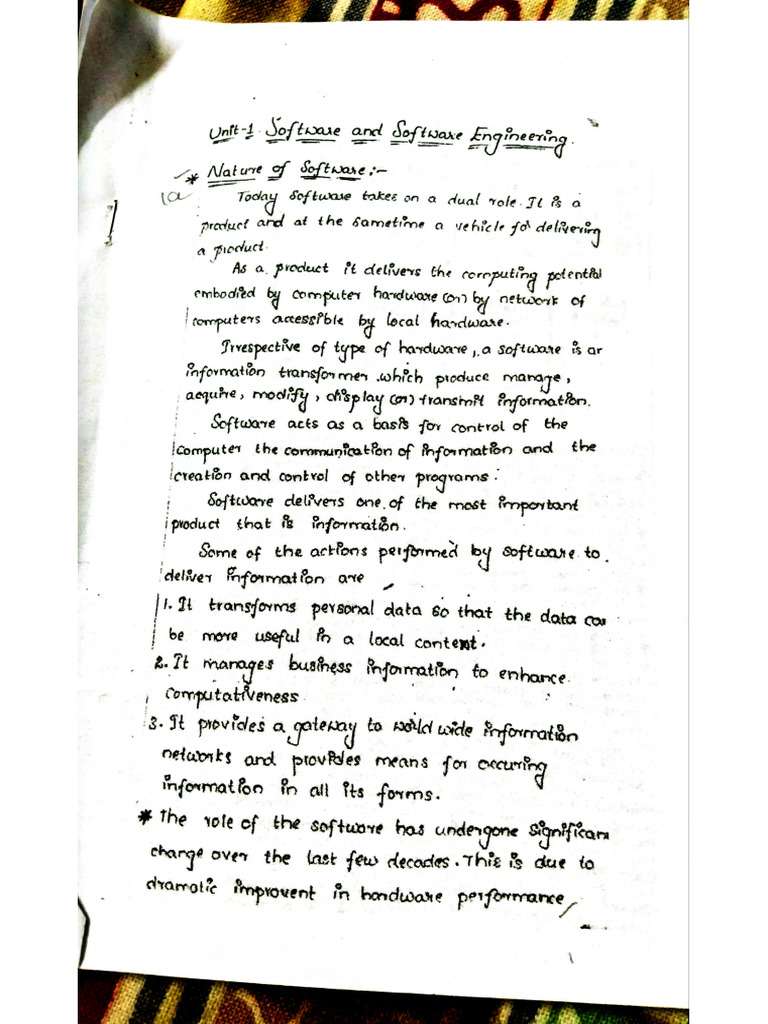 Unit-1 Software and Software Engineering.
* Nature of Software:-
1a
Today software takes on a dual role. It is a
product and at the sametime a vehicle for delivering
a product.
As a product it delivers the computing potential
embodied by computer hardware (or) by network of
computers accessible by local hardware.
Irrespective of type of hardware, a software is an
information transformer which produce manage,
acquire, modify, display (or) transmit information.
Software acts as a basis for control of the
computer the communication of information and the
creation and control of other programs.
Software delivers one of the most important
product that is information.
Some of the actions performed by software to
deliver information are
1. It transforms personal data so that the data can
be more useful in a local content.
2. It manages business information to enhance
computativeness
3. It provides a gateway to world wide information
networks and provides means for occuring
information in all its forms.
* The role of the software has undergone significan
change over the last few decades. This is due to
dramatic improvent in hardware performance,